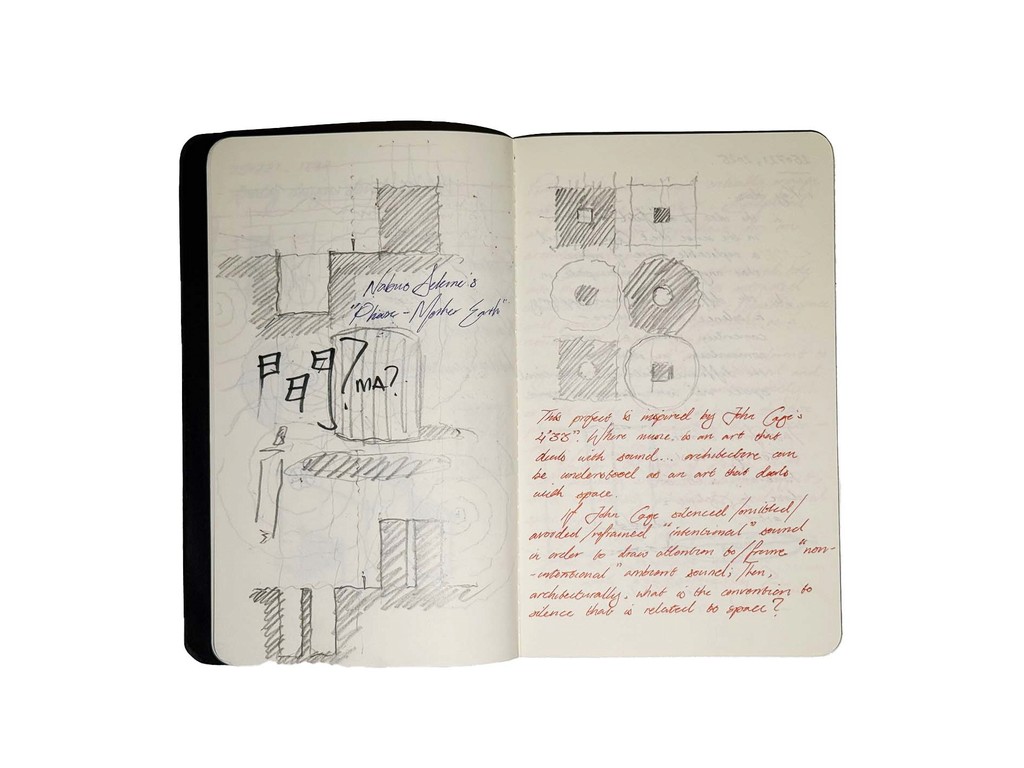 Nabuo Sekine's
"Phase - Mother Earth"
MA?
This project is inspired by John Cage's
4'33". Where music is an art that
deals with sound... architecture can
be understood as an art that deals
with space.
If John Cage silenced/omitted/
avoided/refrained "intentional" sound
in order to draw attention to/frame "non-
-intentional" ambient sound; Then,
architecturally, what is the convention to
silence that is related to space?